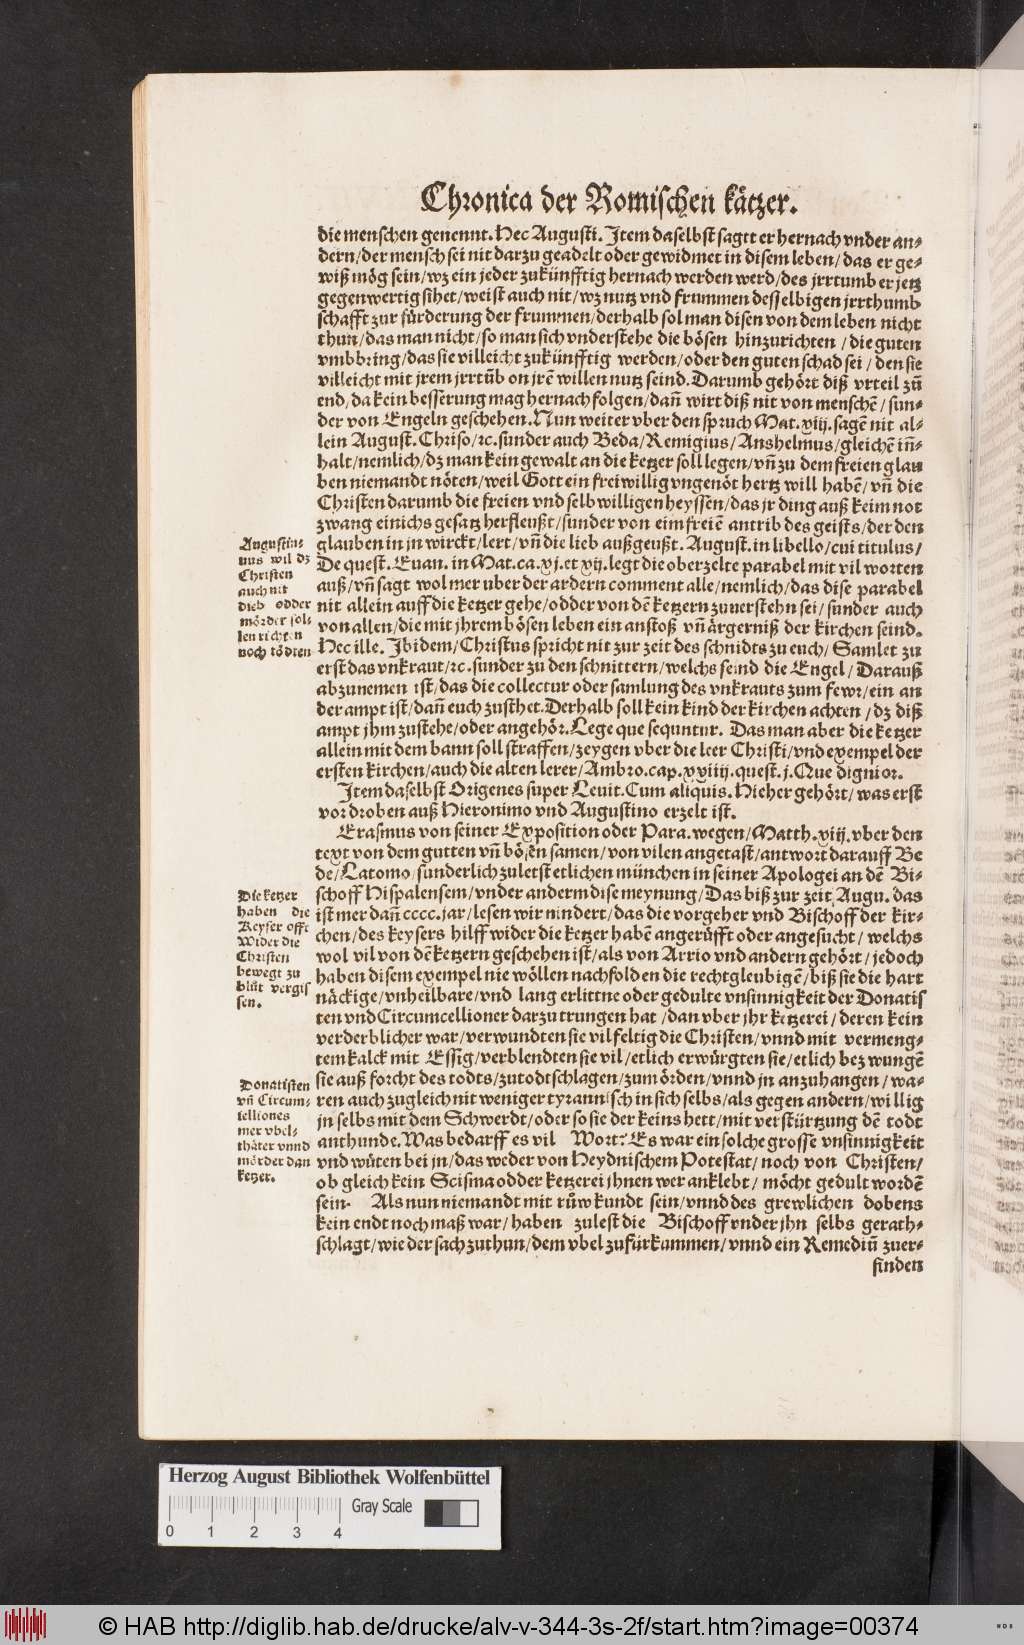 Chronica der Romischen kätzer.
die menschen genennt. Hec Augusti. Item daselbst sagtt er hernach vnder an-
dern/der mensch sei nit darzu geadelt oder gewidmet in disem leben/das er ge-
wiß mög sein/wz ein jeder zukünfftig hernach werden werd/des jrrtumb er jetz
gegenwertig sihet/weist auch nit/wz nutz vnd frummen desselbigen jrrthumb
schafft zur fürderung der frummen/derhalb sol man disen von dem leben nicht
thun/das man nicht/so man sich vnderstehe die bösen hinzurichten/die guten
vmbbring/das sie villeicht zukünfftig werden/oder den guten schad sei/den sie
villeicht mit jrem jrrtũb on jrẽ willen nutz seind. Darumb gehört diß vrteil zũ
end, da kein besserung mag hernach folgen/dañ wirt diß nit von menschẽ/sun-
der von Engeln geschehen. Nun weiter vber den spruch Mat. xiij. sagẽ nit al-
lein August. Chriso/rc. sunder auch Beda/Remigius/Anshelmus/gleichẽ iñ-
halt/nemlich/dz man kein gewalt an die ketzer soll legen/vñ zu dem freien glau
ben niemandt nöten/weil Gott ein freiwillig vngenöt hertz will habẽ/vñ die
Christen darumb die freien vnd selbwilligen heyssen/das jr ding auß keim not
zwang einichs gesatz herfleußt/sunder von eim freiẽ antrib des geists/der den
glauben in jn wirckt/lert/vñ die lieb außgeußt. August. in libello/cui titulus/
De quest. Euan. in Mat. ca. xj. et xij. legt die oberzelte parabel mit vil worten
auß/vñ sagt wol mer uber der andern comment alle/nemlich/das dise parabel
nit allein auff die ketzer gehe/odder von dẽ ketzern zuuerstehn sei/sunder auch
von allen/die mit jhrem bösen leben ein anstoß vñ ärgerniß der kirchen seind.
Hec ille. Ibidem/Christus spricht nit zur zeit des schnidts zu euch/Samlet zu
erst das vnkraut/rc. sunder zu den schnittern/welchs seind die Engel/Darauß
abzunemen ist/das die collectur oder samlung des vnkrauts zum fewr/ein an
der ampt ist/dañ euch zusthet. Derhalb soll kein kind der kirchen achten/dz diß
ampt jhm zustehe/oder angehör. Lege que sequntur. Das man aber die ketzer
allein mit dem bann soll straffen/zeygen vber die leer Christi/vnd exempel der
ersten kirchen/auch die alten lerer/Ambro. cap. xxiiij. quest. j. Que dignior.
Item daselbst Origenes super Leuit. Cum aliquis. Hieher gehört/was erst
vor droben auß Hieronimo vnd Augustino erzelt ist.
Erasmus von seiner Exposition oder Para. wegen/Matth. xiij. vber den
text von dem gutten vñ bösen samen/von vilen angetast/antwort darauff Be
de/Latomo/sunderlich zuletst etlichen münchen in seiner Apologei an dẽ Bi-
schoff Hispalensem/vnder anderm dise meynung/Das biß zur zeit Augu. das
ist mer dañ cccc. jar/lesen wir nindert/das die vorgeher vnd Bischoff der kir-
chen/des keysers hilff wider die ketzer habẽ angerüfft oder angesucht/welchs
wol vil von dẽ ketzern geschehen ist/als von Arrio vnd andern gehört/jedoch
haben disem exempel nie wöllen nachfolden die rechtgleubigẽ/biß sie die hart
näckige/vnheilbare/vnd lang erlittne oder gedulte vnsinnigkeit der Donatis
ten vnd Circumcellioner darzu trungen hat/dan vber jhr ketzerei/deren kein
verderblicher war/verwundten sie vilfeltig die Christen/vnnd mit vermeng-
tem kalck mit Essig/verblendten sie vil/etlich erwürgten sie/etlich bezwungẽ
sie auß forcht des todts/zutodtschlagen/zumörden/vnnd jn anzuhangen/wa-
ren auch zugleich nit weniger tyrannisch in sich selbs/als gegen andern/willig
jn selbs mit dem Schwerdt/oder so sie der keins hett/mit verstürtzung dẽ todt
anthunde. Was bedarff es vil Wort? Es war ein solche grosse vnsinnigkeit
vnd wüten bei jn/das weder von Heydnischem Potestat/noch von Christen/
ob gleich kein Scisma odder ketzerei jhnen wer anklebt/möcht gedult wordẽ
sein. Als nun niemandt mit rüw kundt sein/vnnd des grewlichen dobens
kein endt noch maß war/haben zulest die Bischoff vnder jhn selbs gerath-
schlagt/wie der sach zuthun/dem vbel zufürkummen/vnnd ein Remediũ zuer-
finden
Augustin-
nus wil dz
Christen
auch nit
dieb odder
mörder sol-
len richten
noch tödten
Die ketzer
haben die
Keyser offt
Wider die
Christen
bewegt zu
blüt vergis
sen.
Donatisten
vñ Circum-
celliones
mer vbel-
thäter vnnd
mörder dan
ketzer.
Herzog August Bibliothek Wolfenbüttel
Gray Scale
0 1 2 3 4
© HAB http://diglib.hab.de/drucke/alv-v-344-3s-2f/start.htm?image=00374